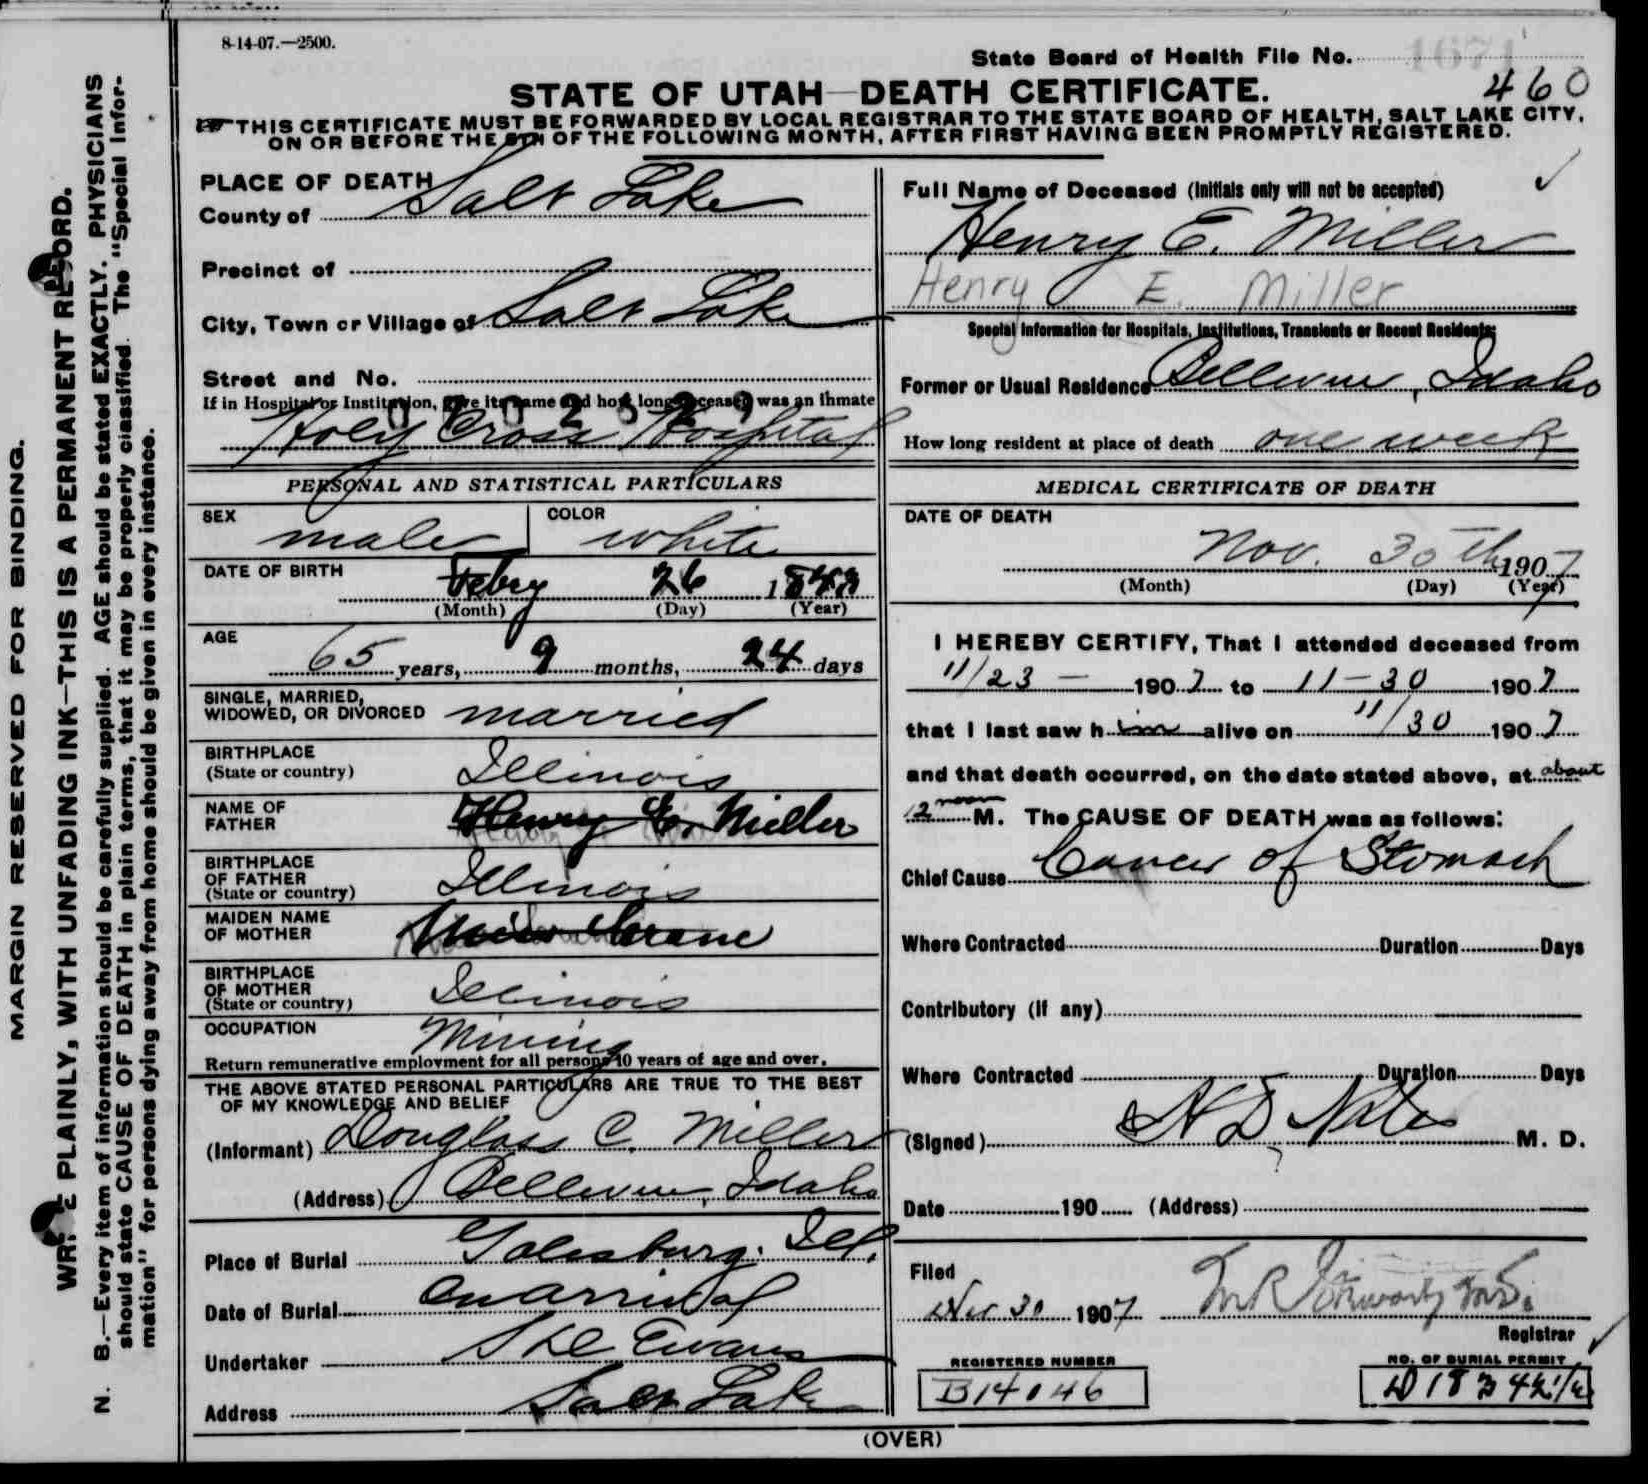 8-14-07.—2500.
State Board of Health File No.
1671
460
STATE OF UTAH—DEATH CERTIFICATE.
THIS CERTIFICATE MUST BE FORWARDED BY LOCAL REGISTRAR TO THE STATE BOARD OF HEALTH, SALT LAKE CITY,
ON OR BEFORE THE 5TH OF THE FOLLOWING MONTH, AFTER FIRST HAVING BEEN PROMPTLY REGISTERED.
MARGIN RESERVED FOR BINDING.
WRITE PLAINLY, WITH UNFADING INK—THIS IS A PERMANENT RECORD.
N. B.—Every item of information should be carefully supplied. AGE should be stated EXACTLY. PHYSICIANS
should state CAUSE OF DEATH in plain terms, that it may be properly classified. The "Special Infor-
mation" for persons dying away from home should be given in every instance.
PLACE OF DEATH
County of Salt Lake
Precinct of
City, Town or Village of Salt Lake
Street and No.
If in Hospital or Institution, give its name and how long deceased was an inmate
Holy Cross Hospital
PERSONAL AND STATISTICAL PARTICULARS
SEX male COLOR white
DATE OF BIRTH Feby 26 1842
(Month) (Day) (Year)
AGE
65 years, 9 months, 24 days
SINGLE, MARRIED,
WIDOWED, OR DIVORCED married
BIRTHPLACE
(State or country) Illinois
NAME OF
FATHER Henry E. Miller
BIRTHPLACE
OF FATHER
(State or country) Illinois
MAIDEN NAME
OF MOTHER Crane
BIRTHPLACE
OF MOTHER
(State or country) Illinois
OCCUPATION Mining
Return remunerative employment for all persons 10 years of age and over.
THE ABOVE STATED PERSONAL PARTICULARS ARE TRUE TO THE BEST
OF MY KNOWLEDGE AND BELIEF
(Informant) Douglass C. Miller
(Address) Bellevue, Idaho
Place of Burial Galesburg. Ill.
Date of Burial on arrival
Undertaker Evans
Address Salt Lake
Full Name of Deceased (Initials only will not be accepted)
Henry E. Miller
Henry E. Miller
Special Information for Hospitals, Institutions, Transients or Recent Residents:
Former or Usual Residence Bellevue, Idaho
How long resident at place of death one week
MEDICAL CERTIFICATE OF DEATH
DATE OF DEATH
Nov. 30th 1907
(Month) (Day) (Year)
I HEREBY CERTIFY, That I attended deceased from
11/23 — 1907 to 11-30 1907
that I last saw him alive on 11/30 1907
and that death occurred, on the date stated above, at about
12 noon M. The CAUSE OF DEATH was as follows:
Chief Cause Cancer of Stomach
Where Contracted Duration Days
Contributory (if any)
Where Contracted Duration Days
(Signed) M. D.
Date 190 (Address)
Filed
Nov 30 1907
Registrar
REGISTERED NUMBER
B14046
NO. OF BURIAL PERMIT
(OVER)